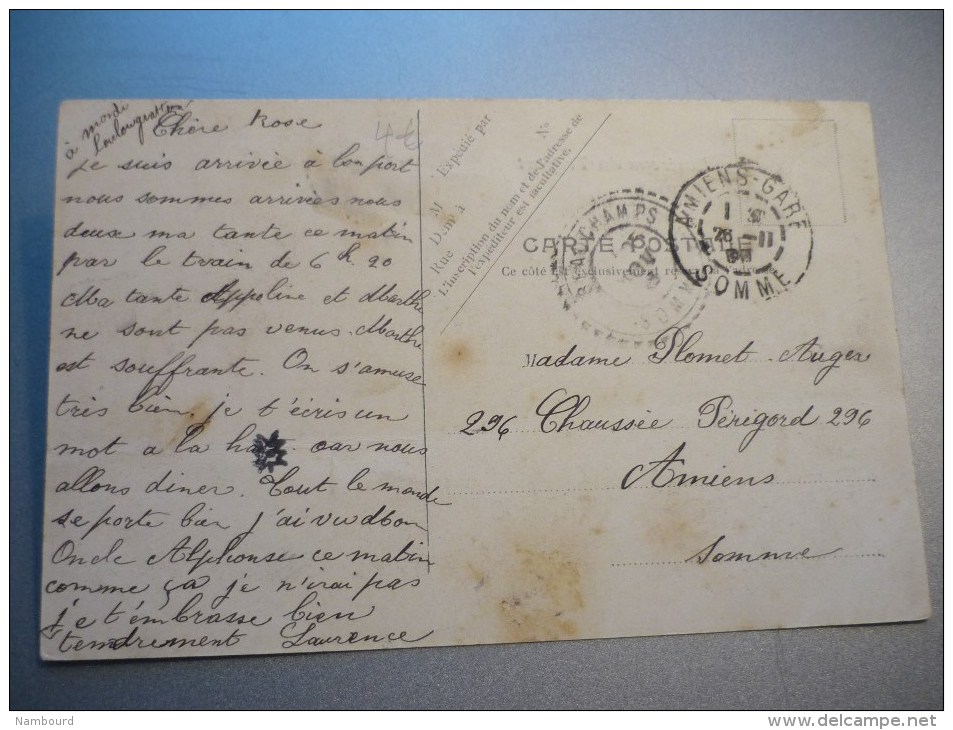 à
monde
Chère Rose
4 €
je suis arrivée à bon port
nous sommes arrivées nous
deux ma tante ce matin
par le train de 6 h 20
Ma tante Appoline et Marthe
ne sont pas venus. Marthe
est souffrante. On s'amuse
très bien. je t'écris un
mot a la car nous
allons diner. Tout le monde
se porte bien j'ai vu Mon
Oncle Alphonse ce matin
comme ça je n'irai pas
je t'embrasse bien
tendrement Laurence
Expédié par
M
Demt à
Rue
No
L'inscription du nom et de l'adresse de
l'expéditeur est facultative.
BEAUCHAMPS
SOMME
AMIENS-GARE
SOMME
CARTE POSTALE
Ce côté est exclusivement réservé à l'adresse
Madame Plomet-Auger
296 Chaussée Périgord 296
Amiens
Somme
Nambourd
www.delcampe.net